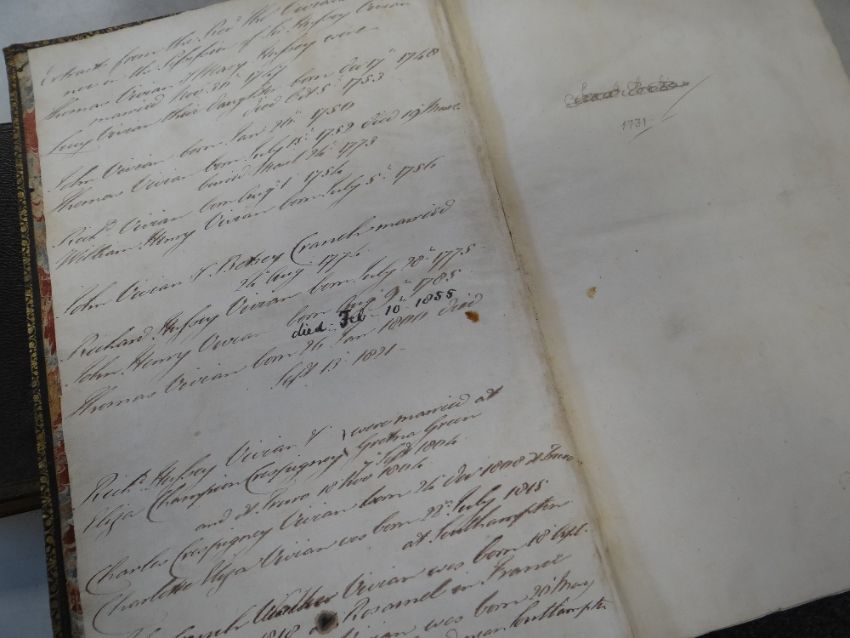 Extracts from the Revd. Thos. Vivian
now in the Possession of
Thomas Vivian & Mary Hussey were
married Nov. 1747
Lucy Vivian their daughter born Oct 17th 1748
died Oct 5th 1753
John Vivian born Jan 1750
Thomas Vivian born July 15th 1752 Died 19
buried March 24th 1773
Richd. Vivian born Augt 1754
William Henry Vivian born July 5th 1756
John Vivian & Betsey Cranch married
24 Augt. 1774
Richard Hussey Vivian born July 28th 1775
John Henry Vivian born Augt 9th 1785
died Feb 10th 1855
Thomas Vivian born 26 Jan died
Sept 13 1821
Richd. Hussey Vivian & were married at
Eliza Champion Crespigney Gretna Green
Sept 1804
and at Truro 18 Nov 1804
Charles Crespigney Vivian born 24 Dec 1808 at Truro
Charlotte Eliza Vivian was born 22d July 1815
at Southampton
Cranch Walker Vivian was born 18 Sept.
1818 at Rosamel in France
Vivian was born 20 May
Southampton
1731